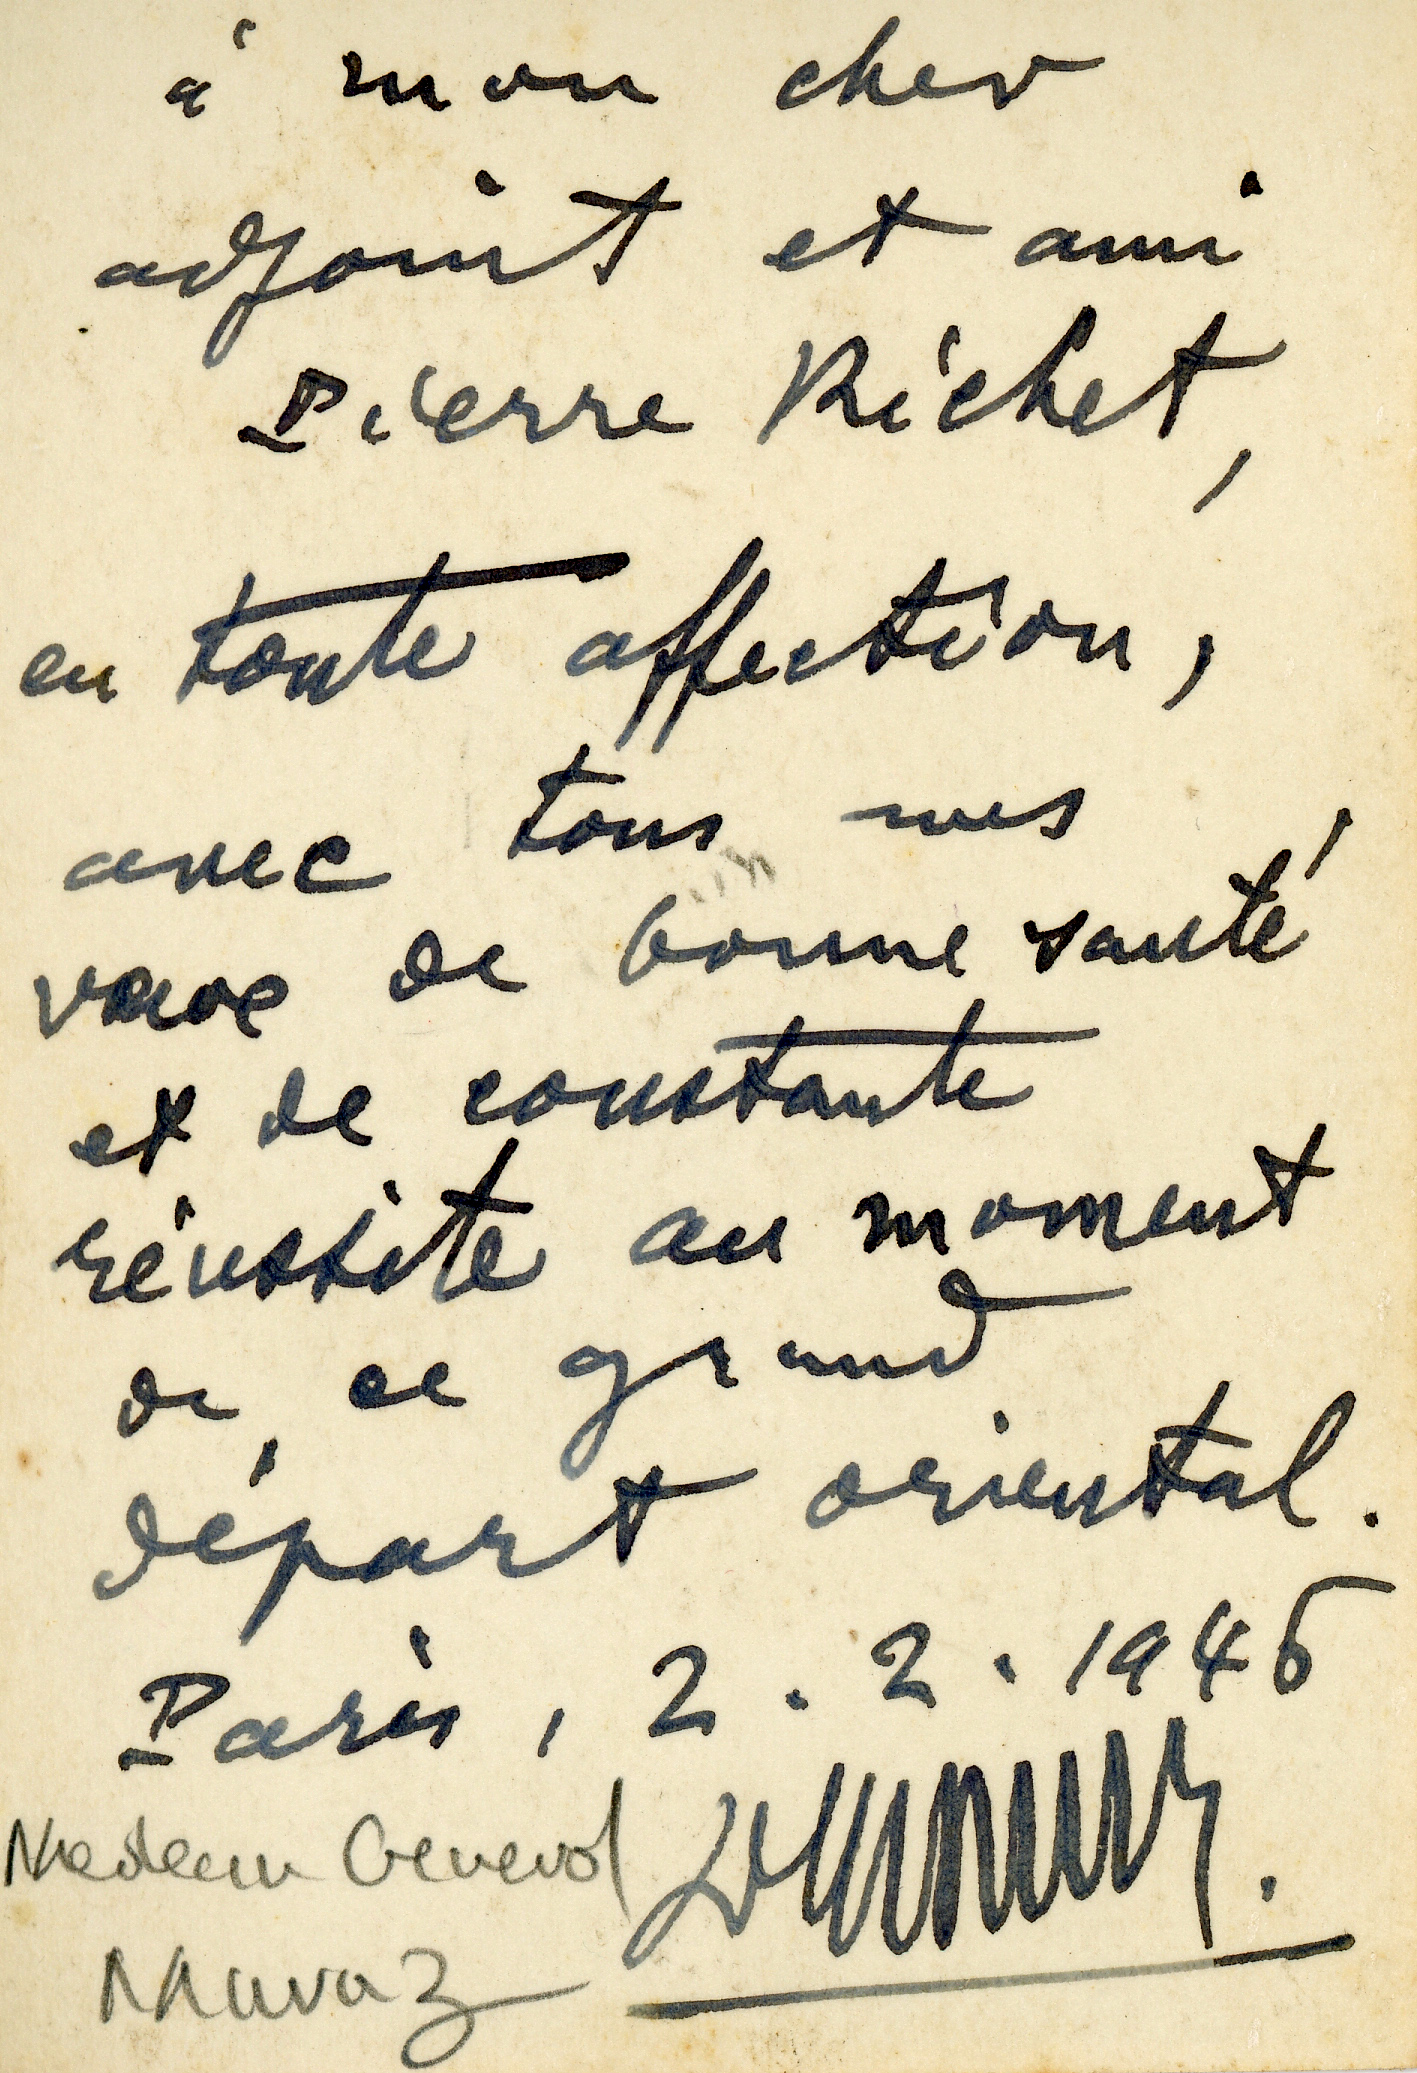 à mon cher
adjoint et ami
Pierre Richet,
en toute affection,
avec tous mes
vœux de bonne santé,
et de constante
réussite au moment
de ce grand
départ oriental.
Paris, 2.2.1946
Medecin General
Muraz